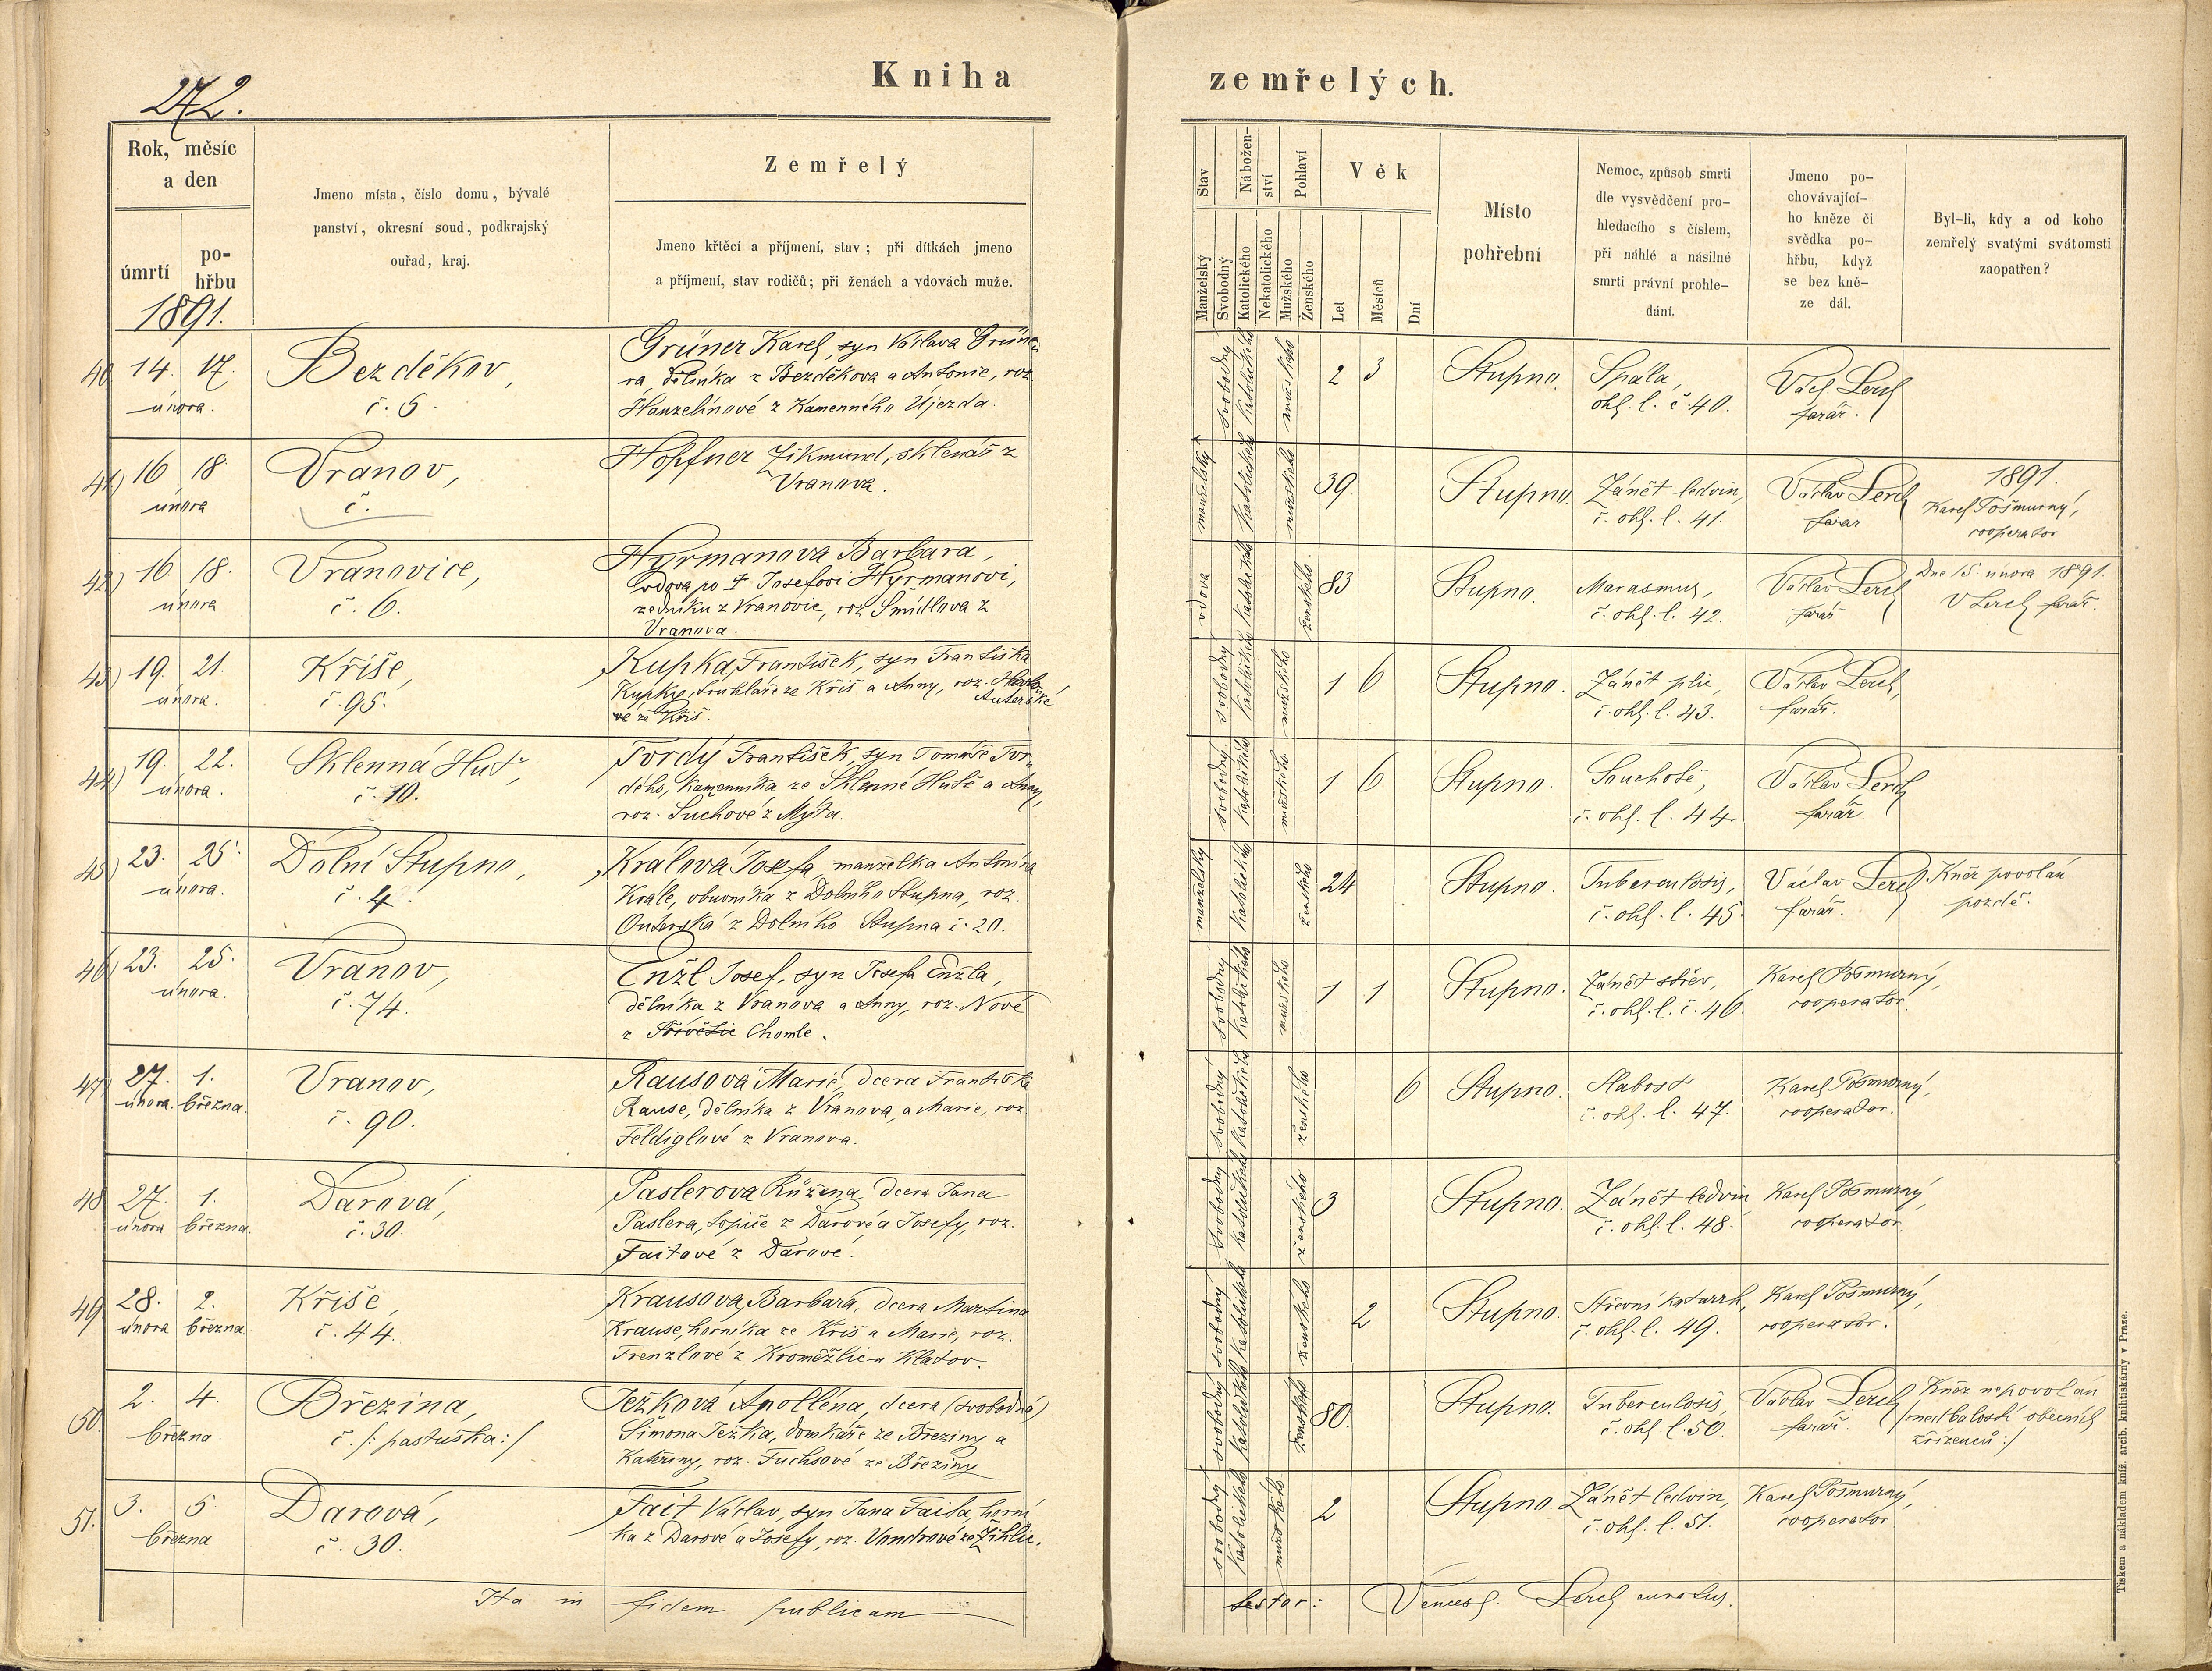 272.
Kniha
zemřelých.
Rok, měsíc
a den
úmrtí
po-
hřbu
1891.
Jmeno místa, číslo domu, bývalé
panství, okresní soud, podkrajský
ouřad, kraj.
Zemřelý
Jmeno křtěcí a příjmení, stav; při dítkách jmeno
a příjmení, stav rodičů; při ženách a vdovách muže.
Stav
Manželský
Svobodný
Nábožen-
ství
Katolického
Nekatolického
Pohlaví
Mužského
Ženského
Věk
Let
Měsíců
Dní
Místo
pohřební
Nemoc, způsob smrti
dle vysvědčení pro-
hledacího s číslem,
při náhlé a násilné
smrti právní prohle-
dání.
Jmeno po-
chovávající-
ho kněze či
svědka po-
hřbu, když
se bez kně-
ze dál.
Byl-li, kdy a od koho
zemřelý svatými svátomsti
zaopatřen?
40 14. 17.
února.
Bezděkov,
č. 5.
Grüner Karel, syn Václava Grüne-
ra, dělníka z Bezděkova a Antonie, roz.
Hanzelínové z Kamenného Újezda.
svobodný katolického mužského 2 3
Stupno.
Spála,
ohl. l. č. 40.
Václ. Lerch
farář.
41) 16 18.
února
Vranov,
č.
Höpfner Zikmund, sklenář z
Vranova.
manželský katolického mužského 39
Stupno.
Zánět ledvin,
č. ohl. l. 41.
Václav Lerch
farář
1891.
Karel Pošmurný,
cooperator
42) 16. 18.
února
Vranovice,
č. 6.
Hyrmanova Barbara,
vdova po † Josefovi Hyrmanovi,
zedníku z Vranovic, roz. Šmídlova z
Vranova.
vdova katolického ženského 83
Stupno.
Marasmus,
č. ohl. l. 42.
Václav Lerch
farář
Dne 15. února 1891.
V Lerch farář.
43) 19. 21.
února.
Kříše,
č. 95.
Kupka František, syn Františka
Kupky, truhláře ze Kříš a Anny, roz.
Auterské
vé ze Kříš.
svobodný katolického mužského 1 6
Stupno.
Zánět plic,
č. ohl. l. 43.
Václav Lerch,
farář.
44) 19. 22.
února.
Sklenná Huť,
č. 10.
Tvrdý František, syn Tomáše Tvr-
dého, kamenníka ze Sklenné Hutě a Anny,
roz. Suchové z Mýta.
svobodný katolického mužského 1 6
Stupno.
Souchotě,
č. ohl. l. 44.
Václav Lerch
farář.
45) 23. 25.
února.
Dolní Stupno,
č. 4.
Králová Josefa manželka Antonína
Krále, obuvníka z Dolního Stupna, roz.
Outerská z Dolního Stupna č. 20.
manželský katolického ženského 24
Stupno.
Tuberculosis,
č. ohl. l. 45.
Václav Lerch
farář.
Kněz povolán
pozdě.
46) 23. 25.
února.
Vranov,
č. 74.
Enžl Josef, syn Josefa Enžla,
dělníka z Vranova a Anny, roz. Nové
z Chomle.
svobodný katolického mužského 1 1
Stupno.
Zánět střev,
č. ohl. l. č. 46.
Karel Pošmurný,
cooperator.
47) 27. 1.
února. března.
Vranov,
č. 90.
Rausová Marie, dcera Františka
Rause, dělníka z Vranova, a Marie, roz.
Feldiglové z Vranova.
svobodný katolického ženského 6
Stupno.
Slabost
č. ohl. l. 47.
Karel Pošmurný,
cooperator.
48 27. 1.
února března.
Darová,
č. 30.
Paslerova Růžena, dcera Jana
Paslera, topiče z Darové a Josefy, roz.
Faitové z Darové.
Svobodný katolického ženského 3
Stupno.
Zánět ledvin,
č. ohl. l. 48.
Karel Pošmurný,
cooperator.
49 28. 2.
února března
Kříše,
č. 44.
Krausova Barbara, dcera Martina
Krause, horníka ze Kříš a Marie, roz.
Frenzlové z Kroměžlic u Klatov.
svobodný katolického ženského 2
Stupno.
Střevní katarrh,
č. ohl. l. 49.
Karel Pošmurný,
cooperator.
50. 2. 4.
března.
Březina,
č. /: pastuška :/
Ježková Apolléna, dcera (svobodná)
Šimona Ježka, domkáře ze Březiny a
Kateřiny, roz. Fuchsové ze Březiny
svobodný katolického ženského 80.
Stupno.
Tuberculosis,
č. ohl. l. 50.
Václav Lerch
farář.
Kněz nepovolán
/: nedbalostí obecních
zřízenců :/
51. 3. 5
března
Darová,
č. 30.
Fait Václav, syn Jana Faita, horní-
ka z Darové a Josefy, roz. Vondrové ze Žihlic.
svobodný katolického mužského 2
Stupno.
Zánět ledvin,
č. ohl. l. 51.
Karel Pošmurný,
cooperator
Ita in fidem publicam
testor: Vencesl. Lerch curatus.
Tiskem a nákladem kníž. arcib. knihtiskárny v Praze.